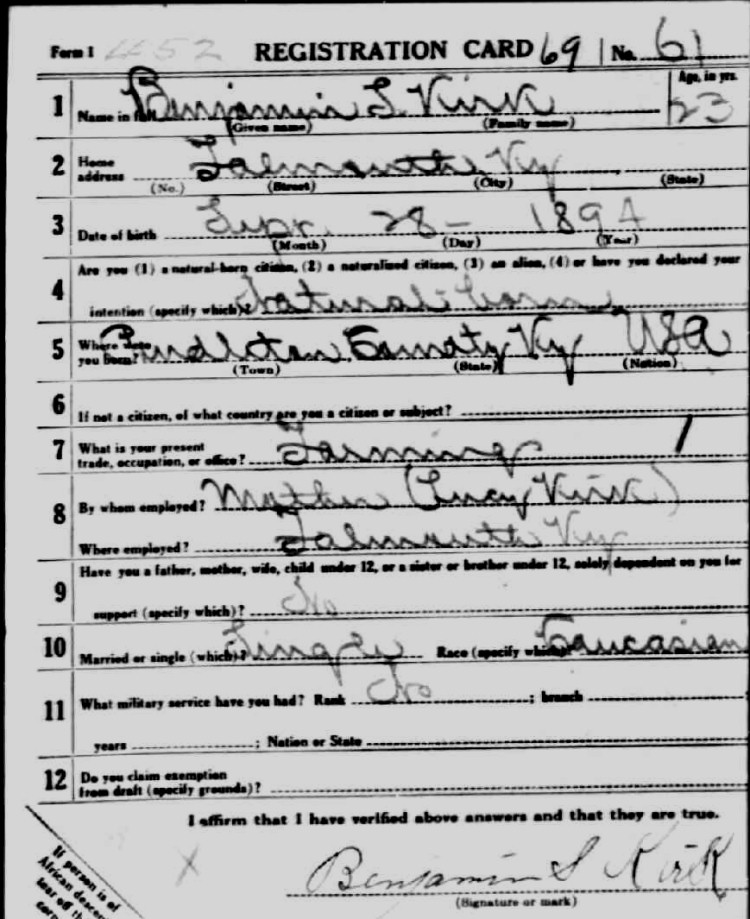 Form 1 4652 REGISTRATION CARD 691 No. 61
1 Name in full Benjamin S. Kirk Age, in yrs. 23
(Given name) (Family name)
2 Home address Falmouth Ky
(No.) (Street) (City) (State)
3 Date of birth Sept. 28 - 1894
(Month) (Day) (Year)
4 Are you (1) a natural-born citizen, (2) a naturalized citizen, (3) an alien, (4) or have you declared your
intention (specify which)? Natural born
5 Where were you born? Pendleton County Ky USA
(Town) (State) (Nation)
6 If not a citizen, of what country are you a citizen or subject?
7 What is your present
trade, occupation, or office? Farming 1
8 By whom employed? Mother (Lucy Kirk)
Where employed? Falmouth Ky
9 Have you a father, mother, wife, child under 12, or a sister or brother under 12, solely dependent on you for
support (specify which)? No
10 Married or single (which)? Single Race (specify which)? Caucasian
11 What military service have you had? Rank No ; branch
years ; Nation or State
12 Do you claim exemption
from draft (specify grounds)?
I affirm that I have verified above answers and that they are true.
X Benjamin S Kirk
(Signature or mark)
If person is of
African descent